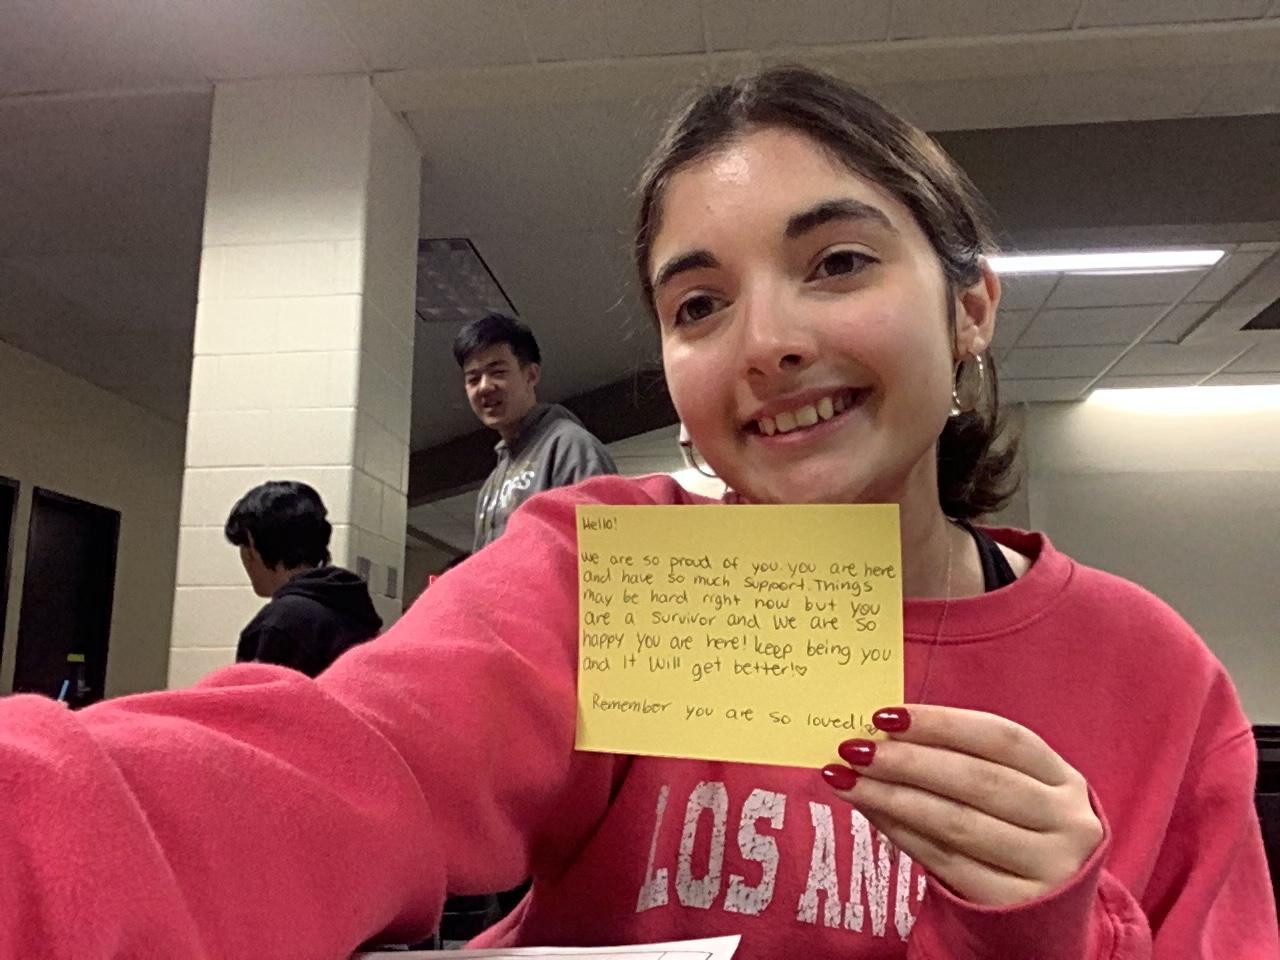 Hello!
We are so proud of you. you are here
and have so much support. Things
may be hard right now but you
are a survivor and we are so
happy you are here! keep being you
and it will get better!♡
Remember you are so loved!♡
LOS ANG